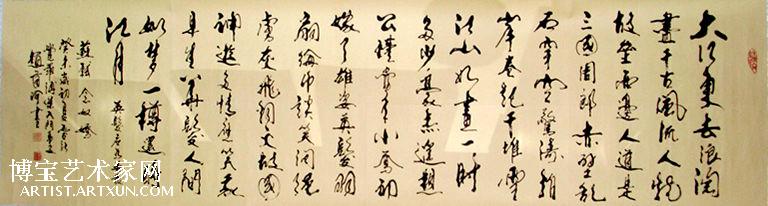 大江東去浪淘
盡千古風流人物
故壘西邊人道是
三國周郎赤壁亂
石穿空驚濤拍
岸卷起千堆雪
江山如畫一時
多少豪杰遙想
公瑾當年小喬初
嫁了雄姿英發羽
扇綸巾談笑間檣
虜灰飛烟滅故國
神遊多情應笑我
早生華髮人間
如夢一樽還酹
江月
蘇軾念奴嬌
博宝艺术家网
ARTIST.ARTXUN.COM